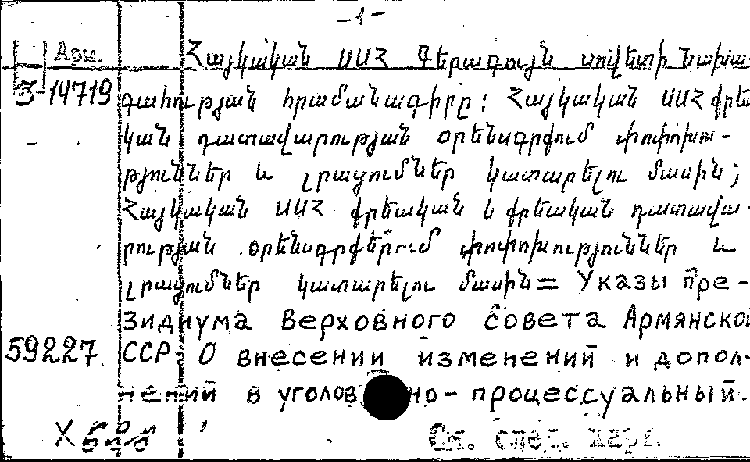 -1-
Арм.
Հայկական ՍՍՀ Գերագույն սովետի նախա-
3-14719 գահության հրամանագիրը: Հայկական ՍՍՀ քրեա-
կան դատավարության օրենսգրքում փոփոխու-
թյուններ և լրացումներ կատարելու մասին;
Հայկական ՍՍՀ քրեական և քրեական դատավա-
րության օրենսգրքերում փոփոխություններ և
լրացումներ կատարելու մասին = Указы Пре-
зидиума Верховного Совета Армянской
59227 ССР О внесении изменений и допол-
нений в уголовно-процессуальный.
См. след. карт.